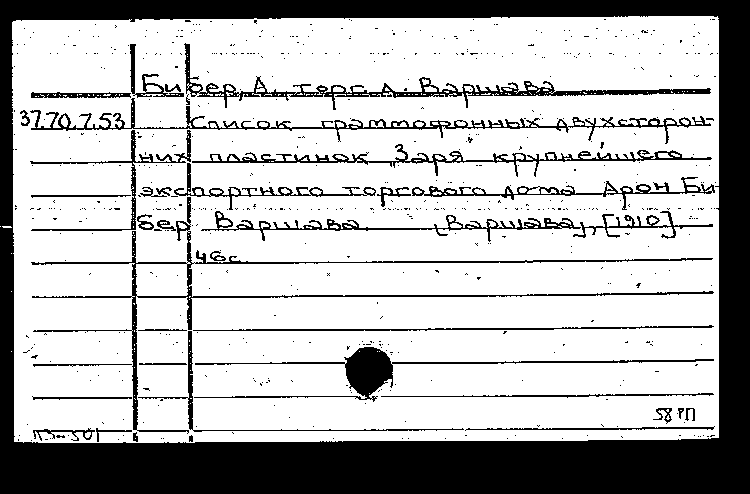 Бибер, А., торг. д. Варшава
37.70.7.53 Список граммофонных двухсторон-
них пластинок „Заря крупнейшего
экспортного торгового дома Арон Би-
бер Варшава. [Варшава], [1910].
46 с.
58 РП